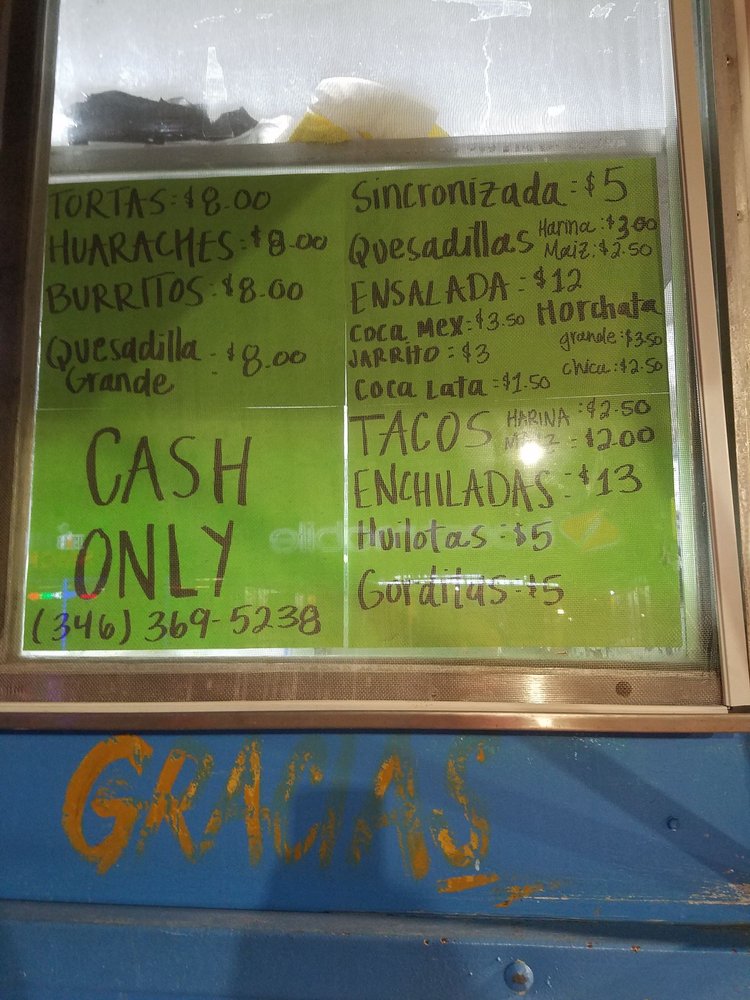 TORTAS: $8.00
HUARACHES: $8.00
BURRITOS: $8.00
Quesadilla Grande : $8.00
CASH
ONLY
(346) 369-5238
Sincronizada: $5
Quesadillas Harina: $3.00
Maiz: $2.50
ENSALADA: $12
COCA MEX: $3.50
JARRITO: $3
COCA Lata: $1.50
Horchata
grande: $3.50
chica: $2.50
TACOS HARINA: $2.50
MAIZ: $2.00
ENCHILADAS: $13
Huilotas: $5
Gorditas: $5
GRACIAS